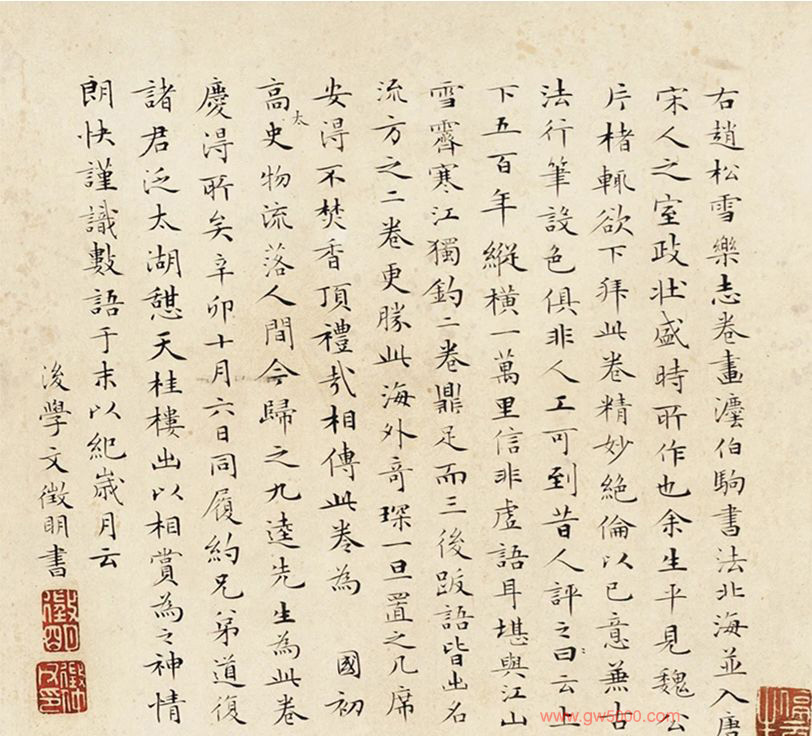 右趙松雪樂志卷畫灋伯駒書法北海並入唐
宋人之室政壯盛時所作也余生平見魏公
片楮輒欲下拜此卷精妙絕倫以己意兼古
法行筆設色俱非人工可到昔人評之曰云上
下五百年縱橫一萬里信非虛語耳堪與江山
雪霽寒江獨釣二卷鼎足而三後跋語皆出名
流方之二卷更勝此海外奇琛一旦置之几席
安得不焚香頂禮哉相傳此卷為 國初
高太史物流落人間今歸之九逵先生為此卷
慶得所矣辛卯十月六日同履約兄弟道復
諸君泛太湖憇天桂樓出以相賞為之神情
朗快謹識數語于末以紀歲月云
後學文徵明書
徵明
www.gw5000.com